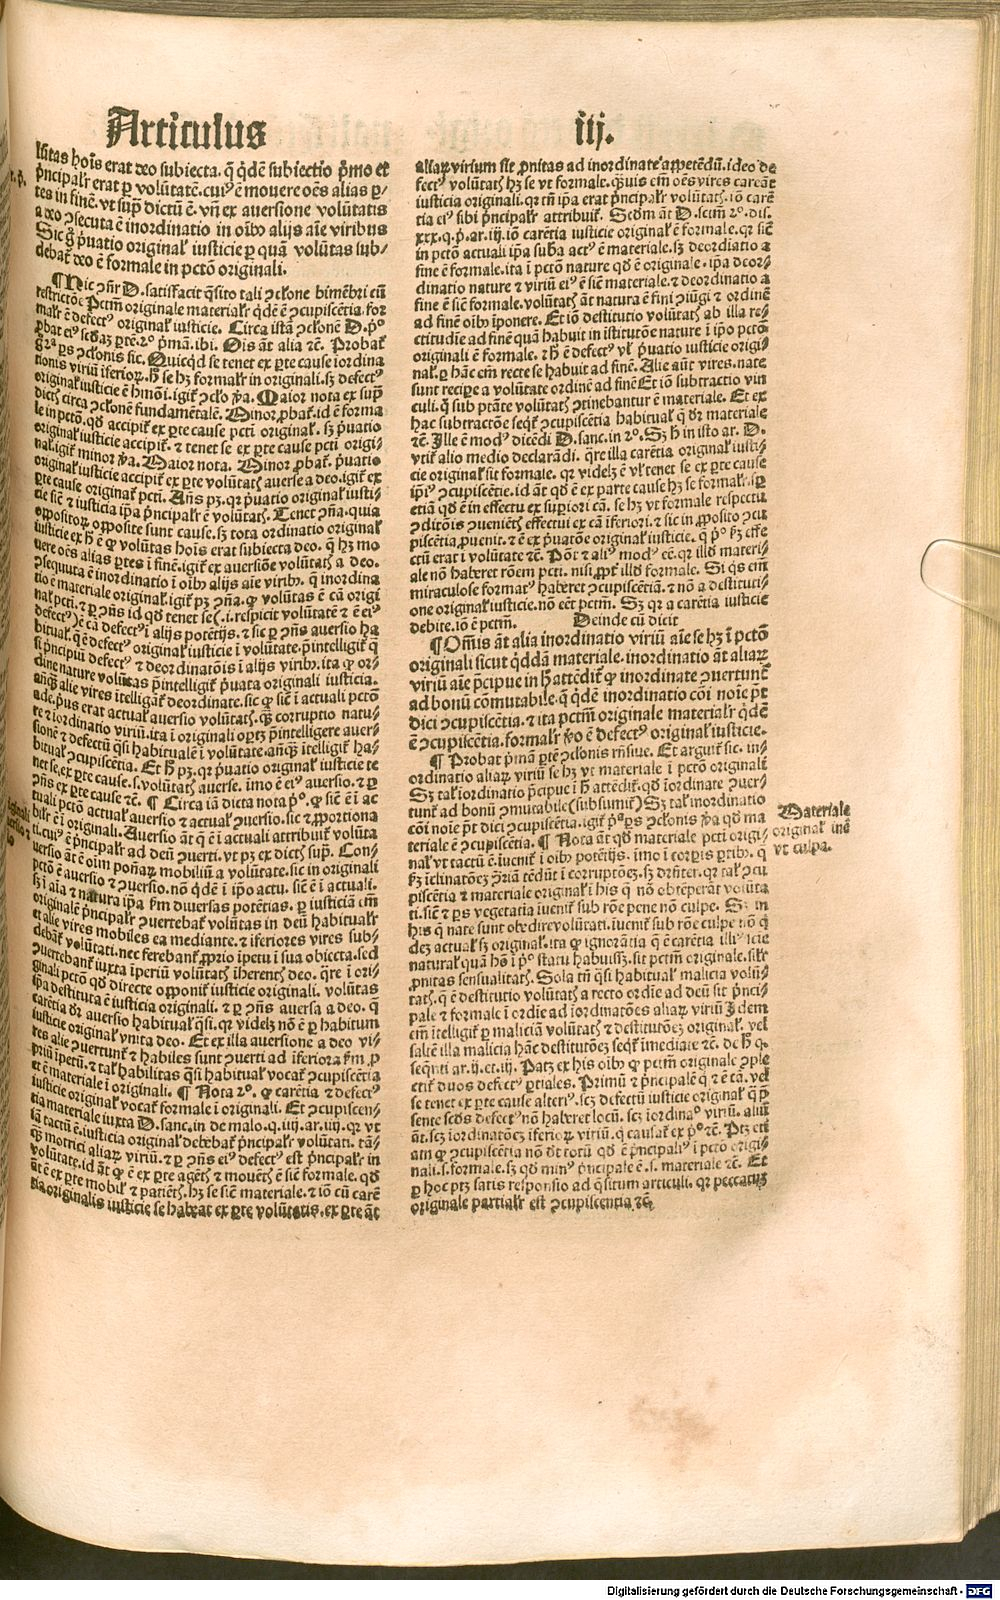 Articulus iij.
lūtas hoīs erat deo subiecta. q̄ qͥdē subiectio pͥmo et
pͥncipalr̄ erat ꝑ volūtatē. cuiꝰ ē mouere oēs alias ꝑ⸗
tes in finē. vt supͣ dictū ē. vn̄ ex auersione volūtatis
a deo ꝓsecuta ē inordinatio in oībꝰ alijs aīe viribus
Sic gͦ pͥuatio originaľ iusticie ꝑ quā volūtas sub⸗
debat̄ deo ē formale in pctō originali.
¶ Hic ꝯn̄r D. satisfacit q̄sito tali ꝯclone bimēbri cū
restrictōe Pctm̄ originale materialr̄ qͥdē ē ꝯcupiscētia. for
malr̄ ē defectꝰ originaľ iusticie. Circa istā ꝯclonē D. pͦ
ꝓbat eiꝰ scd̓aꝫ ꝑtē. 2ͦ pͥmā. ibi. Oīs āt alia ꝛē. Probať
gͦ 2ͣ ꝑs ꝯclonis sic. Quicqͥd se tenet ex ꝑte cause iordina
tionis viriū iferioꝝ. h̄ se hꝫ formalr̄ in originali. sꝫ defectꝰ
originaľ iusticie ē hmōi. igiť ꝯclo ꝟa. Maior nota ex supͣ
dictis circa ꝯclonē fundamētalē. Minor ꝓbať. id ē forma
le in pctō. qd̓ accipiť ex ꝑte cause pcti originaľ. sꝫ pͥuatio
originaľ iusticie accipiť. ⁊ tenet se ex ꝑte cause pcti origi⸗
naľ. igiť minor ꝟa. Maior nota. Minor ꝓbať. pͥuatio
originaľ iusticie accipiť ex ꝑte volūtatꝭ auerse a deo. igiť ex
ꝑte cause originaľ pcti. An̄s pꝫ. qꝛ pͥuatio originaľ iusti⸗
cie sic̄ ⁊ iusticia ip̄a pͥncipalr̄ ē volūtatꝭ. Tenet ꝯn̄a. quia
oppositoꝝ opposite sunt cause. sꝫ tota ordinatio originaľ
iusticie ex h̄ ē ꝙ volūtas hoīs erat subiecta deo. q̄ hꝫ mo
uere oēs alias ꝑtes ī finē. igiť ex auersiōe volūtatꝭ a deo.
ꝓsequuta ē inordinatio ī oībꝰ alijs aīe viribꝰ. q̄ inordina
tio ē materiale originaľ. igiť pꝫ ꝯn̄a. ꝙ volūtas ē cā origi
naľ pcti. ⁊ ꝑ ꝯn̄s id qd̓ tenet se. i. respicit volūtatē ⁊ ē eiꝰ
defectꝰ ē cā defectꝰ ī alijs potētijs. ⁊ sic ꝑ ꝯn̄s auersio ha
bitualꝭ. q̄ ē defectꝰ originaľ iusticie ī volūtate. pͥntelligiť q̄
si pͥncipiū defectꝰ ⁊ deordinatōis ī alijs viribꝰ. ita ꝙ or⸗
dine nature volūtas pͥintelligiť pͥuata originali iusticia.
anq̄ꝫ alie vires ītelligāť deordinate. sic ꝙ sic̄ ī actuali pctō
ade. pͥus erat actualꝭ auersio volūtatꝭ. qͣꝫ corruptio natu⸗
re ⁊ īordinatio viriū. ita ī originali oportꝫ pͥintelligere auer⸗
sionē ⁊ defectū q̄si habitualē ī volūtate. anq̄ꝫ ītelligiť ha⸗
bitualꝭ ꝯcupiscētia. Et h̄ pꝫ. qꝛ pͥuatio originaľ iusticie te
net se. ex ꝑte cause. s. volūtatꝭ auerse. īmo ē eiꝰ auersio. ⁊ ꝑ
ꝯn̄s ex ꝑte cause ꝛē. ¶ Circa iā dicta nota pͦ. ꝙ sic̄ ē ī ac
tuali pctō actualꝭ auersio ⁊ actualꝭ ꝯuersio. sic ⁊ ꝓportiona
bilr̄ ē ī originali. Auersio āt q̄ ē ī actuali attribuiť volūta
ti. cuiꝰ ē pͥncipalr̄ ad deū ꝯuerti. vt pꝫ ex dictis supͣ. Con⸗
uersio āt ē oīm poñarꝫ mobiliū a volūtate. sic in originali
pctō ē auersio ⁊ ꝯuersio. nō qͥdē ī ip̄o actu. sic̄ ē ī actuali.
sꝫ ī aīa ⁊ natura ip̄a ẜm diuersas potētias. ꝑ iusticiā em̄
originalē pͥncipalr̄ ꝯuertebať volūtas in deū habitualr̄
et alie vires mobiles ea mediante. ⁊ iferiores vires sub⸗
debāť volūtati. nec ferebanť ꝓprio īpetu ī sua obiecta. sed
ꝯuertebanť iuxta īperiū volūtatꝭ iherentꝭ deo. qͣre ī ori⸗
ginali pctō qd̓ directe opponiť iusticie originali. volūtas
ip̄a destituta ē iusticia originali. ⁊ ꝑ ꝯn̄s auersa a deo. q̄
carētia dr̄ auersio habitualꝭ q̄si. qꝛ videlꝫ nō ē ꝑ habitum
iusticie originaľ vnita deo. Et ex illa auersione a deo vi⸗
res alie ꝯuertunť ⁊ habiles sunt ꝯuerti ad iferiora ẜm ꝓ
priū īpetū. ⁊ talꝭ habilitas q̄si habitualꝭ vocať ꝯcupiscētia
et ē materiale ī originali. ¶ Nota 2ͦ. ꝙ carētia ⁊ defectꝰ
iusticie originaľ vocať formale ī originali. Et ꝯcupiscen⸗
tia materiale iuxta D. sanc. in de malo. q. iiij. ar. iij. qꝛ vt
iā tactū ē. iusticia originaľ debebať pͥncipalr̄ volūtati. tā⸗
qͣꝫ motrici aliaꝝ viriū. ⁊ ꝑ ꝯn̄s eiꝰ defectꝰ est pͥncipalr̄ in
volūtate. id āt ꝙ ē ex ꝑte agētꝭ ⁊ mouētꝭ ē sic̄ formale. qd̓
āt ē ex ꝑte mobiľ ⁊ patiētꝭ. hꝫ se sic̄ materiale. ⁊ iō cū carē
tia originalis iusticie se habeat ex ꝑte volūtatis. ex ꝑte āt
aliaꝝ virium sit ꝓnitas ad inordinate appetēdū. ideo de
fectꝰ volūtatꝭ hꝫ se vt formale. qͣuis em̄ oēs vires careāt
iusticia originali. qꝛ tn̄ ip̄a erat pͥncipalr̄ volūtatꝭ. iō carē
tia eiꝰ sibi pͥncipalr̄ attribuiť. Scd̓m āt D. scim̄ 2ͦ. dis.
xxx. q. pͣ. ar. iij. iō carētia iusticie originaľ ē formale. qꝛ sic̄
in pctō actuali ip̄a suba actꝰ ē materiale. sꝫ deordiatio a
fine ē formale. ita ī pctō nature qd̓ ē originale. ip̄a deor⸗
dinatio nature ⁊ viriū eiꝰ ē sic̄ materiale. ⁊ deordinatio a
fine ē sic̄ formale. volūtatꝭ āt natura ē fini ꝯiūgi ⁊ ordinē
ad finē oībꝰ īponere. Et iō destitutio volūtatꝭ ab illa re⸗
ctitudīe ad finē quā habuit in īstitutōe nature ī ip̄o pctō
originali ē formale. ⁊ h̄ ē defectꝰ vľ pͥuatio iusticie origi⸗
naľ. ꝑ hāc em̄ recte se habuit ad finē. Alie aūt vires. nate
sunt recipe a volūtate ordinē ad finē Et iō subtractio vin
culi. q̄ sub ptāte volūtatꝭ ꝯtinebantur ē materiale. Et ex
hac subtractōe seqͥť ꝯcupiscētia habitualꝭ q̄ dr̄ materiale
ꝛē. Ille ē modꝰ dicēdi D. sanc. in 2ͦ. Sꝫ h̄ in isto ar. D.
vtiť alio medio declarādi. qͣre illa carētia originaľ iusti⸗
cie originaľ sit formale. qꝛ videlꝫ ē vľ tenet se ex ꝑte cause
ip̄iꝰ ꝯcupiscētie. id āt qd̓ ē ex parte cause hꝫ se formalr̄. sꝑ
etiā qd̓ ē in effectu ex supiori cā. se hꝫ vt formale respectu
ꝯditōis ꝯueniētꝭ effectui ex cā iferiori. ⁊ sic in ꝓposito ꝯcu
piscētia ꝓuenit. ⁊ ē ex pͥuatōe originaľ iusticie. q̄ pͦ hꝫ effe
ctū erat ī volūtate ꝛē. Pōt ⁊ aliꝰ modꝰ eē. qꝛ illd̓ materi⸗
ale nō haberet rōem pcti. nisi ꝓpť illd̓ formale. Si q̇s em̄
miraculose formatꝰ haberet ꝯcupiscētiā. ⁊ nō a destituci⸗
one originaľ iusticie. nō eēt pctm̄. Sꝫ qꝛ a carētia iusticie
debite. iō ē pctm̄. Deinde cū dicit
¶ Omīs āt alia inordinatio viriū aīe se hꝫ ī pctō
originali sicut qͥddā materiale. inordinatio āt aliaꝝ
viriū aīe pͥcipue in h̄ attēdiť ꝙ inordinate ꝯuertunť
ad bonū cōmutabile. q̄ qͥdē inordinatio cōi noīe pōt
dici ꝯcupiscētia. ⁊ ita pctm̄ originale materialr̄ qͥdē
ē ꝯcupiscētia. formalr̄ ꝟo ē defectꝰ originaľ iusticie.
¶ Probať pͥmā ꝑtē ꝯclonis rn̄siue. Et arguiť sic. in⸗
ordinatio aliaꝝ viriū se hꝫ vt materiale ī pctō originali
Sꝫ talꝭ iordinatio pͥncipue ī h̄ attēdiť. qd̓ iordinate ꝯuer⸗
tunť ad bonū ꝯmutabile (subsumiť) Sꝫ talꝭ inordinatio
cōi noīe pōt dici ꝯcupiscētia. igiť pͣ ꝑs ꝯclonis ꝟa qd̓ ma
teriale ē ꝯcupiscētia. ¶ Nota āt qd̓ materiale pcti origi⸗
naľ vt tactū ē. iueniť ī oībꝰ potētijs. īmo ī corꝑis ꝑtibꝰ. q̄
hꝫ iclinatōeꝫ ꝯtͣriā tēdūt ī corruptōeꝫ. sꝫ driñter. qꝛ talꝭ ꝯcu
piscētia ⁊ materiale originaľ ī his q̄ nō obtēperāt volūta
ti. sic̄ ⁊ ꝑs vegetatia iueniť sub rōe pene nō culpe. Sꝫ in
his q̄ nate sunt obedire volūtati. iueniť sub rōe culpe nō q̄
deꝫ actualꝭ sꝫ originaľ. ita ꝙ ignorātia q̄ ē carētia illiꝰ scie
naturaľ quā hō ī pͦ statu habuissꝫ. sit pctm̄ originale. silr̄
ꝓnitas sensualitatꝭ. Sola tn̄ q̄si habitualꝭ malicia volū⸗
tatꝭ. q̄ ē destitutio volūtatꝭ a recto ordīe ad deū sit pͥnci⸗
pale ⁊ formale ī ordīe ad iordinatōes aliaꝝ viriū Idem
em̄ ītelligiť ꝑ maliciā volūtatꝭ ⁊ destitutōeꝫ originaľ. vel
saltē illa malicia hāc destitutōeꝫ seqͥť īmediate ꝛē. de h̄ q̄.
seqn̄ti ar. ij. et. iij. Patꝫ ex his oībꝰ ꝙ pctm̄ originale ꝯple
ctiť duos defectꝰ ꝑtiales. Primū ⁊ pͥncipalē q̄ ē ⁊ ē cā. vel
se tenet ex ꝑte cause alteriꝰ. scꝫ defectū iusticie originaľ q̄ pͥ
sente scd̓s defectꝰ nō haberet locū. scꝫ iordinatō viriū. aliū
āt. scꝫ iordinatōeꝫ iferioꝝ viriū. q̄ causať ex pͦ ꝛē. Ptꝫ eti
am ꝙ ꝯcupiscētia nō dꝛ totū qd̓ ē pͥncipaliꝰ ī pctō origi⸗
nali. s. formale. sꝫ qd̓ minꝰ pͥncipale ē. s. materiale ꝛē. Et
ꝑ hoc ptꝫ satis responsio ad q̄situm articuli. qꝛ peccatuꝫ
originale partialr̄ est ꝯcupiscentia ꝛē.
Materiale
originaľ inē
vt culpa.
Digitalisierung gefördert durch die Deutsche Forschungsgemeinschaft - DFG